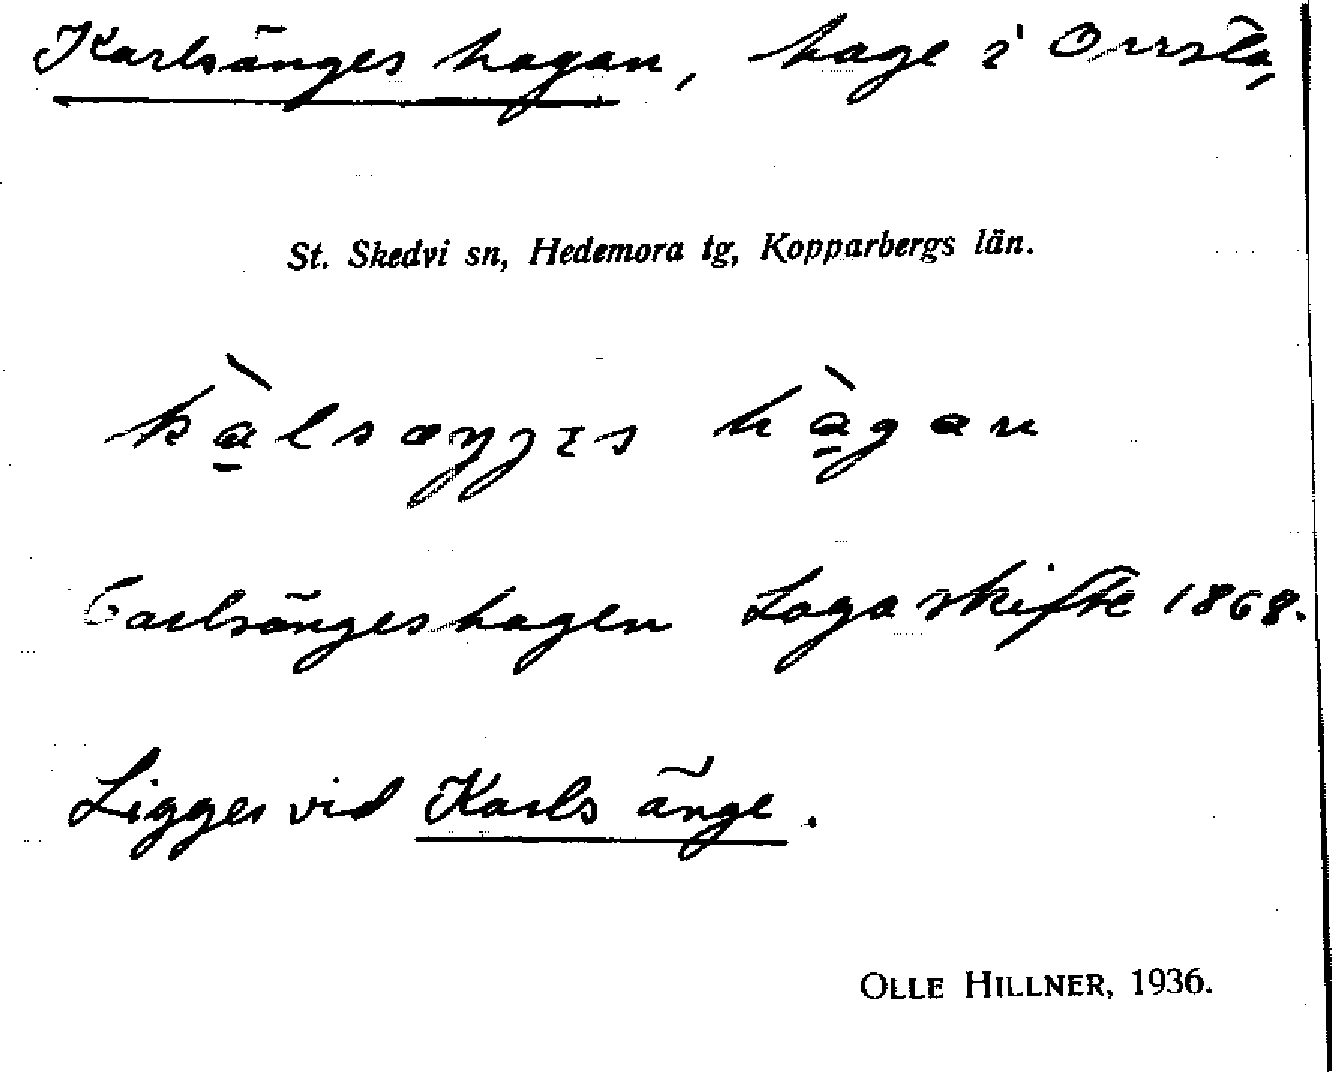 Karlsänges hagan, hage i Orrsta,
St. Skedvi sn, Hedemora tg, Kopparbergs län.
kàlsæŋŋes hàgan
Carlsängeshagen Laga skifte 1868.
Ligger vid Karls änge.
OLLE HILLNER, 1936.